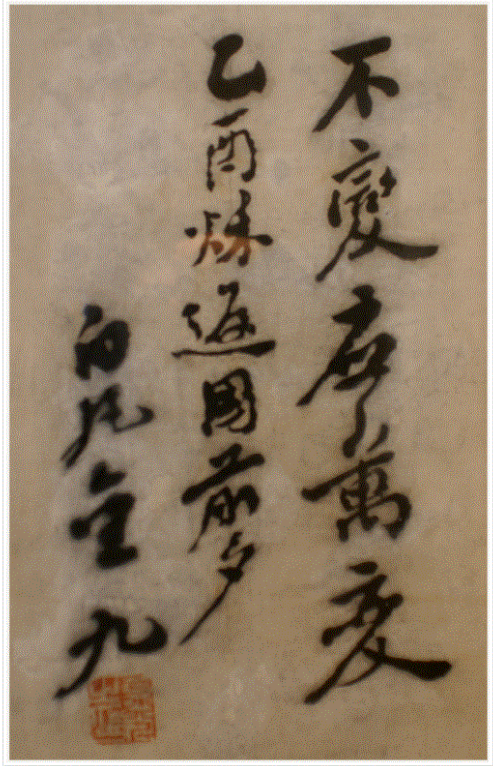 不變應萬變
乙酉秌返國前夕
白凡金九